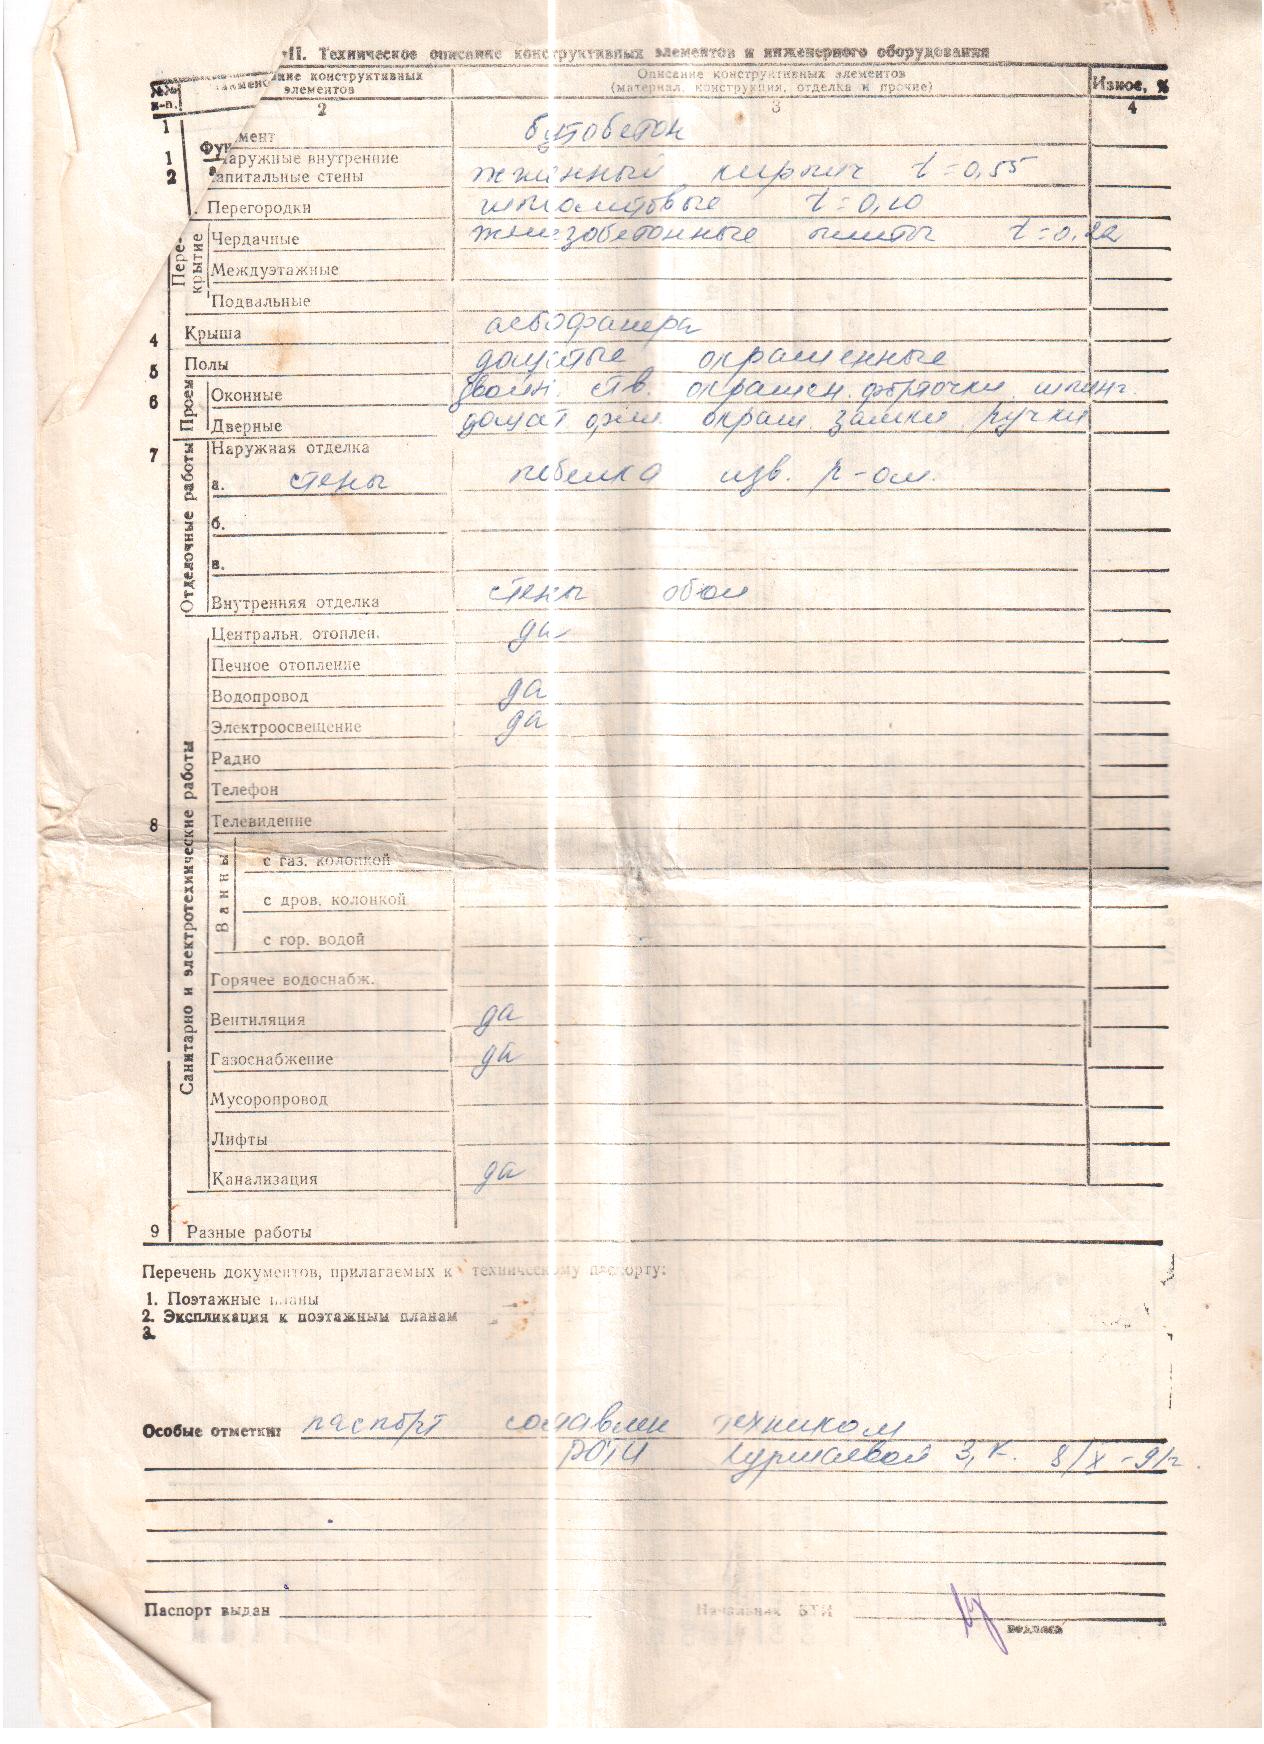 II. Техническое описание конструктивных элементов и инженерного оборудования
№№ п-п.
конструктивных элементов
Описание конструктивных элементов
(материал, конструкция, отделка и прочие)
Износ, %
1 2 3 4
1 Фун мент бутобетон
2 аружные внутренние
апитальные стены жжённый кирпич t=0,55
Перегородки t=0,10
Перекрытие
Чердачные железобетонные плиты t=0,22
Междуэтажные
Подвальные
4 Крыша асбофанера
5 Полы дощатые окрашенные
6 Проем
Оконные двойн. ств. окрашен. форточки шпинг.
Дверные дощат окраш замки ручки
7 Отделочные работы
Наружная отделка
а. стены побелка изв. р-ом.
б.
в.
Внутренняя отделка стены обои
8 Санитарно и электротехнические работы
Центральн. отоплен. да
Печное отопление
Водопровод да
Электроосвещение да
Радио
Телефон
Телевидение
Ванны
с газ. колонкой
с дров. колонкой
с гор. водой
Горячее водоснабж.
Вентиляция да
Газоснабжение да
Мусоропровод
Лифты
Канализация да
9 Разные работы
Перечень документов, прилагаемых к техническому паспорту:
1. Поэтажные планы
2. Экспликация к поэтажным планам
3.
Особые отметки: паспорт составлен техником
РБТИ З.К. 8/X-91г.
Паспорт выдан
Начальник БТИ
подпись